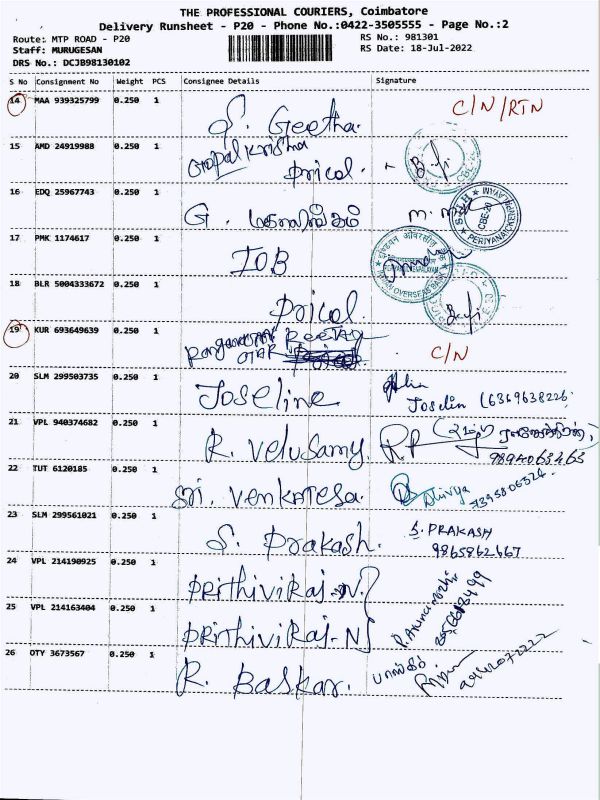 THE PROFESSIONAL COURIERS, Coimbatore
Delivery Runsheet - P20 - Phone No.:0422-3505555 - Page No.:2
Route: MTP ROAD - P20 RS No.: 981301
Staff: MURUGESAN RS Date: 18-Jul-2022
DRS No.: DCJB98130102
S No Consignment No Weight PCS Consignee Details Signature
14 MAA 939325799 0.250 1 S. Geetha. C/N/RTN
15 AMD 24919988 0.250 1 Gopal Krishna
Pricol.
16 EDQ 25967743 0.250 1 G. மகாலிங்கம்
17 PMK 1174617 0.250 1 IOB
INDIAN OVERSEAS BANK
18 BLR 5004333672 0.250 1 Pricol
19 KUR 693649639 0.250 1 C/N
20 SLM 299503735 0.250 1 Joseline
Joselin (6369638226
21 VPL 940374682 0.250 1 R. Velusamy. RP
9894063463
22 TUT 6120185 0.250 1 Sri. Venkatesa. Dhivya
23 SLM 299561021 0.250 1 S. Prakash. S. PRAKASH
9865862667
24 VPL 214190925 0.250 1 Prithiviraj-N.
25 VPL 214163404 0.250 1 Prithiviraj-N
26 OTY 3673567 0.250 1 R. Baskar. பாஸ்கர்